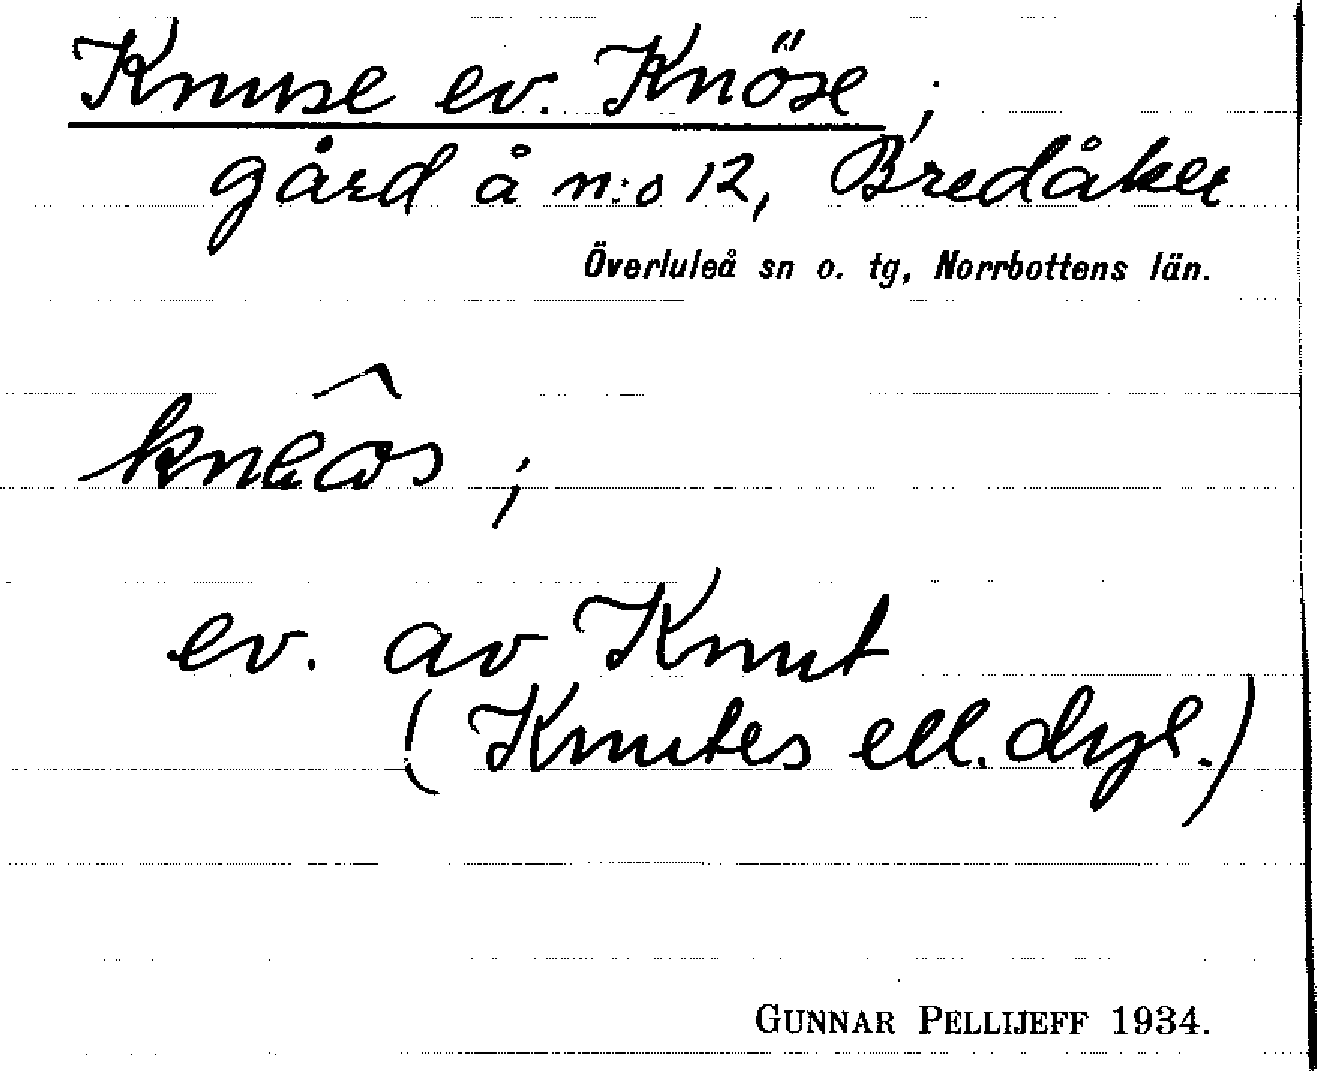 Knuse ev. Knöse;
gård å n:o 12, Bredåker
Överluleå sn o. tg, Norrbottens län.
ev. av Knut
(Knutes ell. dyl.)
GUNNAR PELLIJEFF 1934.